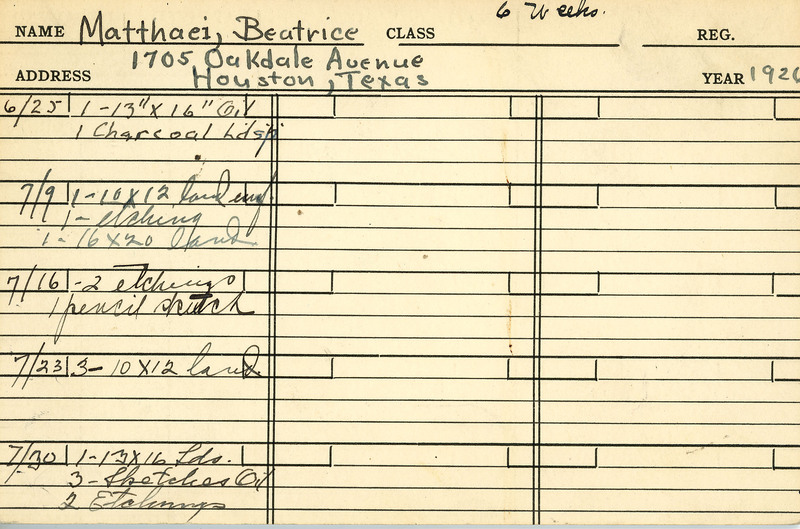 6 Weeks.
NAME Matthaei, Beatrice CLASS REG.
1705 Oakdale Avenue
ADDRESS Houston, Texas YEAR 1926
6/25 1-13"X16" Oil
1 Charcoal Ldsp
7/9 1-10X12 land
1-etching
1-16X20 land
7/16 -2 etchings
1 pencil sketch
7/23 3-10X12 land
7/30 1-13X16 Lds.
3-Sketches Oil
2 Etchings